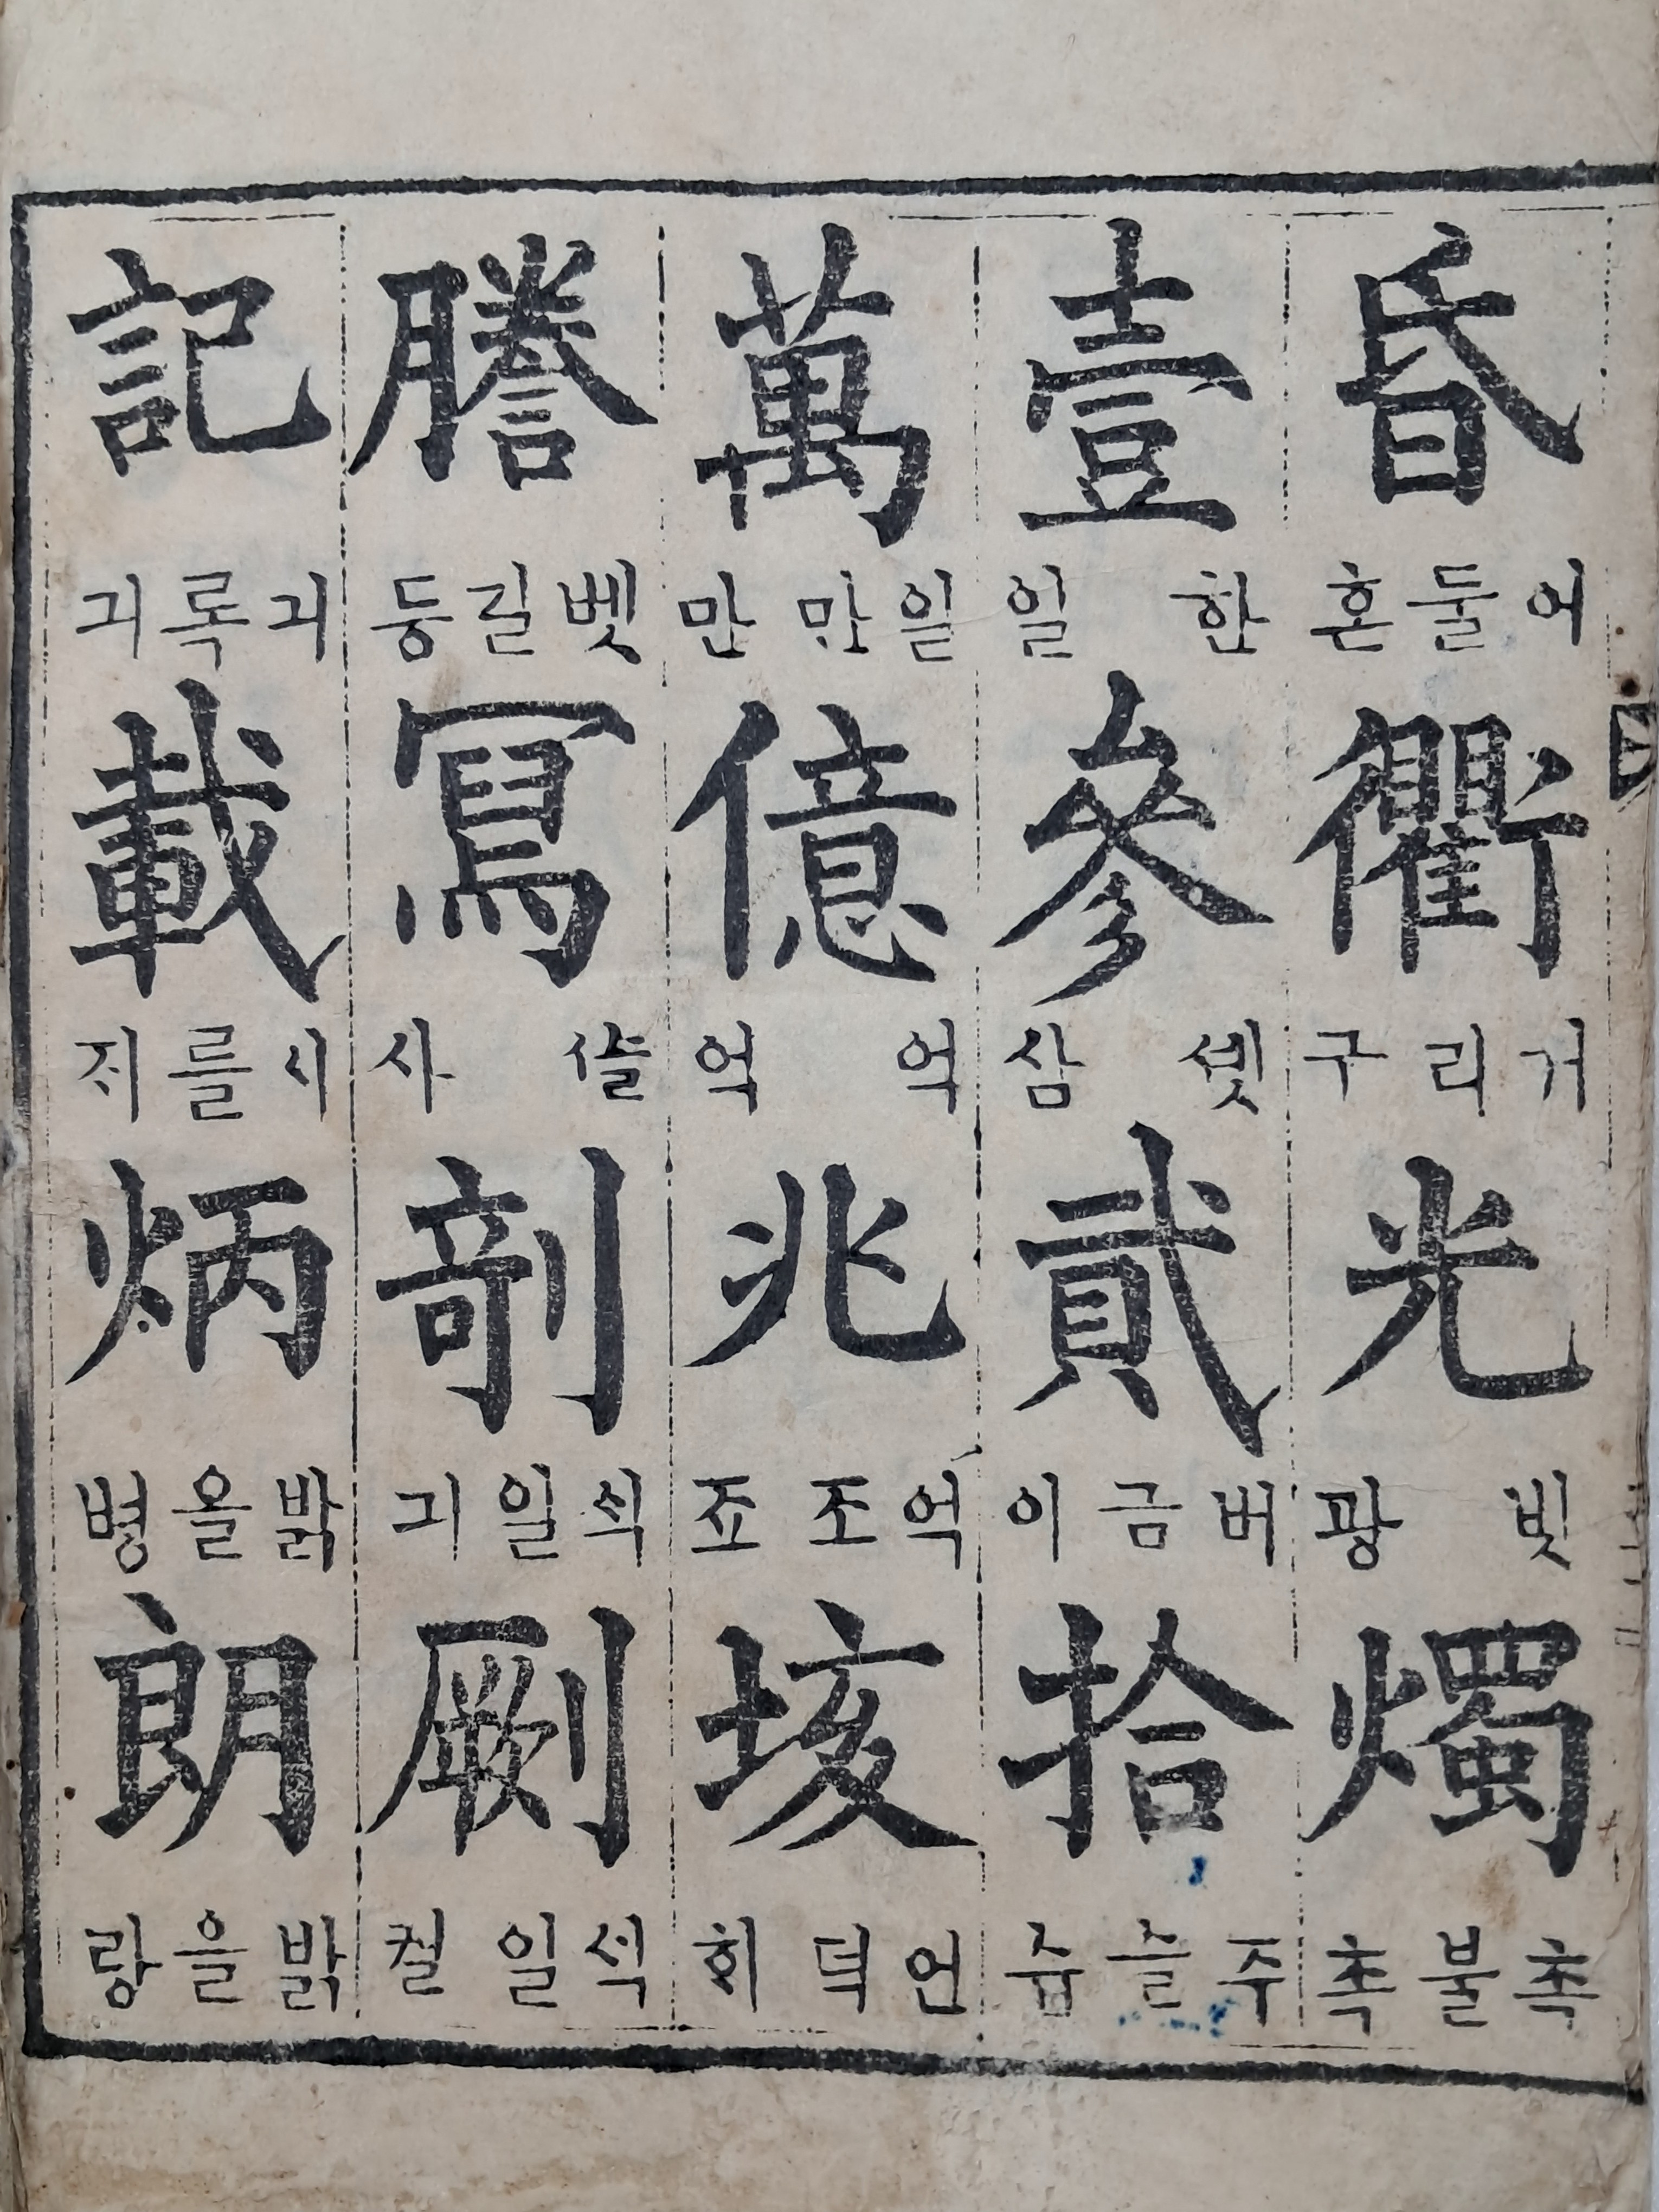 昏 어둘 혼
衢 거리 구
光 빗 광
燭 촉불 촉
壹 한 일
參 셋 삼
貳 버금 이
拾 주슬 쥽
萬 일만 만
億 억 억
兆 억조 죠
垓 언덕 ᄒᆡ
謄 벳길 둥
寫 사
剞 ᄉᆡᆨ일 긔
劂 ᄉᆡᆨ일
記 긔록 긔
載 시를 ᄌᆡ
炳 밝올 병
朗 밝을 랑